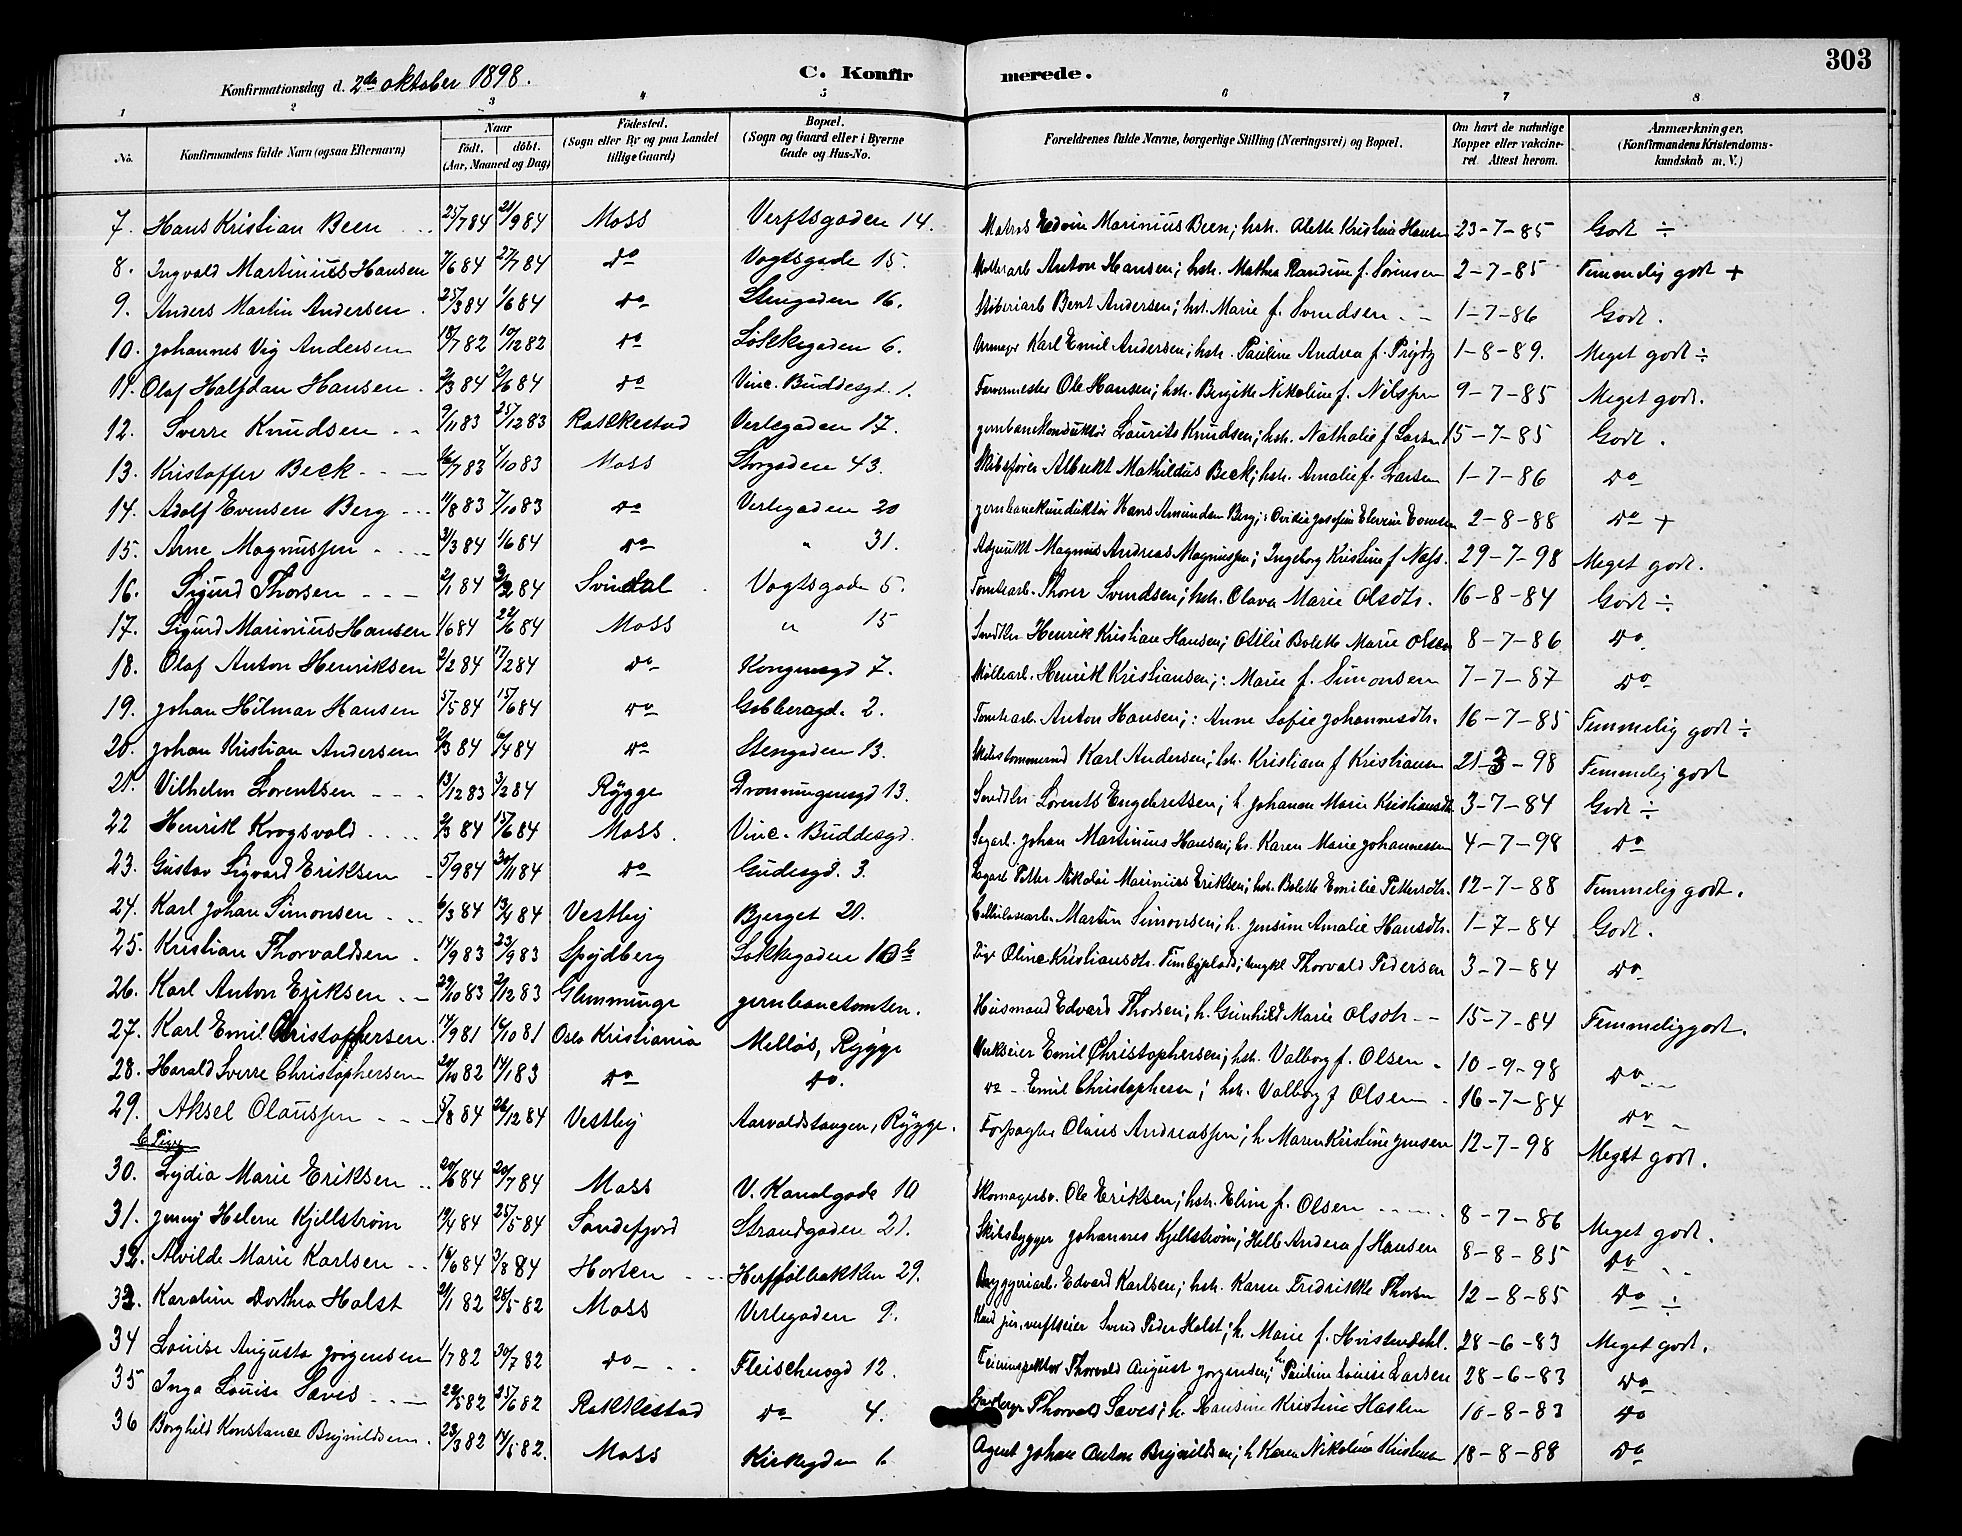 303
Konfirmationsdag d. 2de oktober 1898.
C. Konfirmerede.
1 2 3 4 5 6 7 8
No.
Konfirmandens fulde Navn (ogsaa Efternavn)
Naar
födt. döbt.
(Aar, Maaned og Dag)
Födested.
(Sogn eller By og paa Landet
tillige Gaard)
Bopæl.
(Sogn og Gaard eller i Byerne
Gade og Hus-No.
Forældrenes fulde Navne, borgerlige Stilling (Næringsvei) og Bopæl.
Om havt de naturlige
Kopper eller vakcine-
ret. Attest herom.
Anmærkninger.
(Konfirmandens Kristendoms-
kundskab m. V.)
7. Hans Kristian Been 25/7 84 21/9 84 Moss Verftsgaden 14. Matros Edvin Marinius Been; hstr. Alette Kristine Hansen 23-7-85 Godt ÷
8. Ingvald Martinius Hansen 7/6 84 27/7 84 do Vogtsgade 15. Anton Hansen; hstr. Mathea Randine f. Sörensen 2-7-85 Temmelig godt +
9. Anders Martin Andersen 25/3 84 1/6 84 do Stengaden 16. Stöberiarb Bent Andersen; hst. Marie f. Svendsen 1-7-86 Godt.
10. Johannes Vig Andersen 18/7 82 10/12 82 do Lökkegaden 6. Karl Emil Andersen; hstr. Pauline Andrea f. 1-8-89. Meget godt ÷
11. Olaf Halfdan Hansen 2/3 84 2/6 84 do Vinc. Buddesgd. 1. Ole Hansen; hstr. Birgitte Nikoline f. Nilssen 9-7-85 Meget godt.
12. Sverre Knudsen 9/11 83 25/12 83 Rakkestad Verlegaden 17. jernbanekonduktör Laurits Knudsen; hstr. Nathalie f Larsen 15-7-85 Godt.
13. Kristoffer Beck 16/7 83 4/10 83 Moss Storgaden 43. Skibsförer Albrekt Mathildus Beck; hstr. Amalie f. Larsen 1-7-86 do
14. Adolf Evensen Berg 11/8 83 7/10 83 do Verlegaden 20 jernbanekunduktör Hans Amundsen Berg; Josefine Evensen 2-8-88 do +
15. Arne Magnussen 31/3 84 1/6 84 do " 31. Adjunkt Magnus Andreas Magnussen; Ingeborg Kristine f Næss. 29-7-98 Meget godt.
16. Sigurd Thorsen 2/1 84 3/2 84 Svindal Vogtsgade 5. Tomtearb. Thorer Svendsen; hstr. Olava Marie Olsdtr. 16-8-84 Godt ÷
17. Sigurd Marinius Hansen 1/6 84 22/6 84 Moss " 15 Henrik Kristian Hansen; Otilie Bolette Marie Olsen 8-7-86 do.
18. Olaf Anton Henriksen 2/2 84 17/2 84 do Kongensgd 7. Möllearb. Henrik Kristiansen; : Marie f. Simonsen 7-7-87 do
19. Johan Hilmar Hansen 5/5 84 15/6 84 do Gobberogd. 2. Tomtearb. Anton Hansen; : Anne Sofie Johannesdtr. 16-7-85 Temmelig godt ÷
20. Johan Kristian Andersen 2/3 84 6/4 84 do Stengaden 13. Skibstömmermd Karl Andersen; hstr. Kristiane f Kristiansen 21-3-98 Temmelig godt
21. Vilhelm Lorentsen 13/12 83 3/2 84 Rygge Dronningensgd 13. Lorents Engebretsen; h. Johanne Marie Kristiansdtr 3-7-84 Godt ÷
22 Henrik Krogsvold 2/3 84 15/6 84 Moss. Vinc. Buddesgd. Sagarb. Johan Martinius Hansen; hs. Karen Marie Johannessen 4-7-98 do
23. Gustav Sigvard Eriksen 5/9 84 30/11 84 do Gudesgd. 3. Sagarb Petter Nikolai Marinius Eriksen; hstr. Bolette Emilie Pettersdtr. 12-7-88 Temmelig godt.
24. Karl Johan Simonsen 6/3 84 13/4 84 Vestby Bjerget 20. Cellulosearb. Martin Simonsen; h. Jensine Amalie Hansdtr. 1-7-84 Godt.
25. Kristian Thorvaldsen 14/9 83 23/9 83 Spydberg Lökkegaden 10b Pige Oline Kristiansdtr. ungkl Thorvald Pedersen 3-7-84 do
26. Karl Anton Eriksen 29/10 83 2/12 83 Glemminge jernbanetomten. Husmand Edvard Thorsen; h. Gunhild Marie Olsdtr 15-7-84 Temmelig godt.
27. Karl Emil Christophersen 14/9 81 16/10 81 Oslo Kristiania Mellös, Rygge Verkseier Emil Christophersen; hstr. Valborg f. Olsen 10-9-98 do
28. Harald Sverre Christophersen 20/10 82 14/1 83 do do. do Emil Christophersen; hstr. Valborg f Olsen 16-7-84 do
29. Aksel Olaussen 5/8 84 26/12 84 Vestby Aarvoldstangen, Rygge. Forpagter Olaus Andreassen; h Maren Kristine Jensen 12-7-98 Meget godt.
b. Piger
30. Lydia Marie Eriksen 20/6 84 20/7 84 Moss V. Kanalgade 10 Skomagersv. Ole Eriksen; hstr. Eline f. Olsen 8-7-86 Meget godt.
31. Jenny Helene Kjellström 19/4 84 25/5 84 Sandefjord Strandgaden 21. Skibsbygger Johannes Kjellström; Helle Andrea f Hansen 8-8-85 do
32. Alvilde Marie Karlsen 16/6 84 3/8 84 Horten Herfölbakken 29. Bryggeriarb. Edvard Karlsen; hstr. Karen Fredrikke Thorsen 12-8-85 do ÷
33. Karoline Dorthea Holst 21/1 82 28/5 82 Moss Verlegaden 9. Kand jur. verftseier Svend Peder Holst; h. Marie f. Hvistendahl. 28-6-83 Meget godt.
34 Louise Augusta Jörgensen 1/7 82 30/7 82 do Fleischersgd 12. Thorvald August Jörgensen; h: Pauline Louise Larsen 28-6-83 do
35 Inga Louise Saves 22/5 82 25/6 82 Rakkestad do 4. Thorvald Saves; h. Hansine Kristine Haslem 10-8-83 do
36 Borghild Konstance Brynildsen 23/3 82 14/5 82. Moss Kirkegden 6 Agent Johan Anton Brynildsen; h Karen Nikoline Kristensen 18-8-88 do